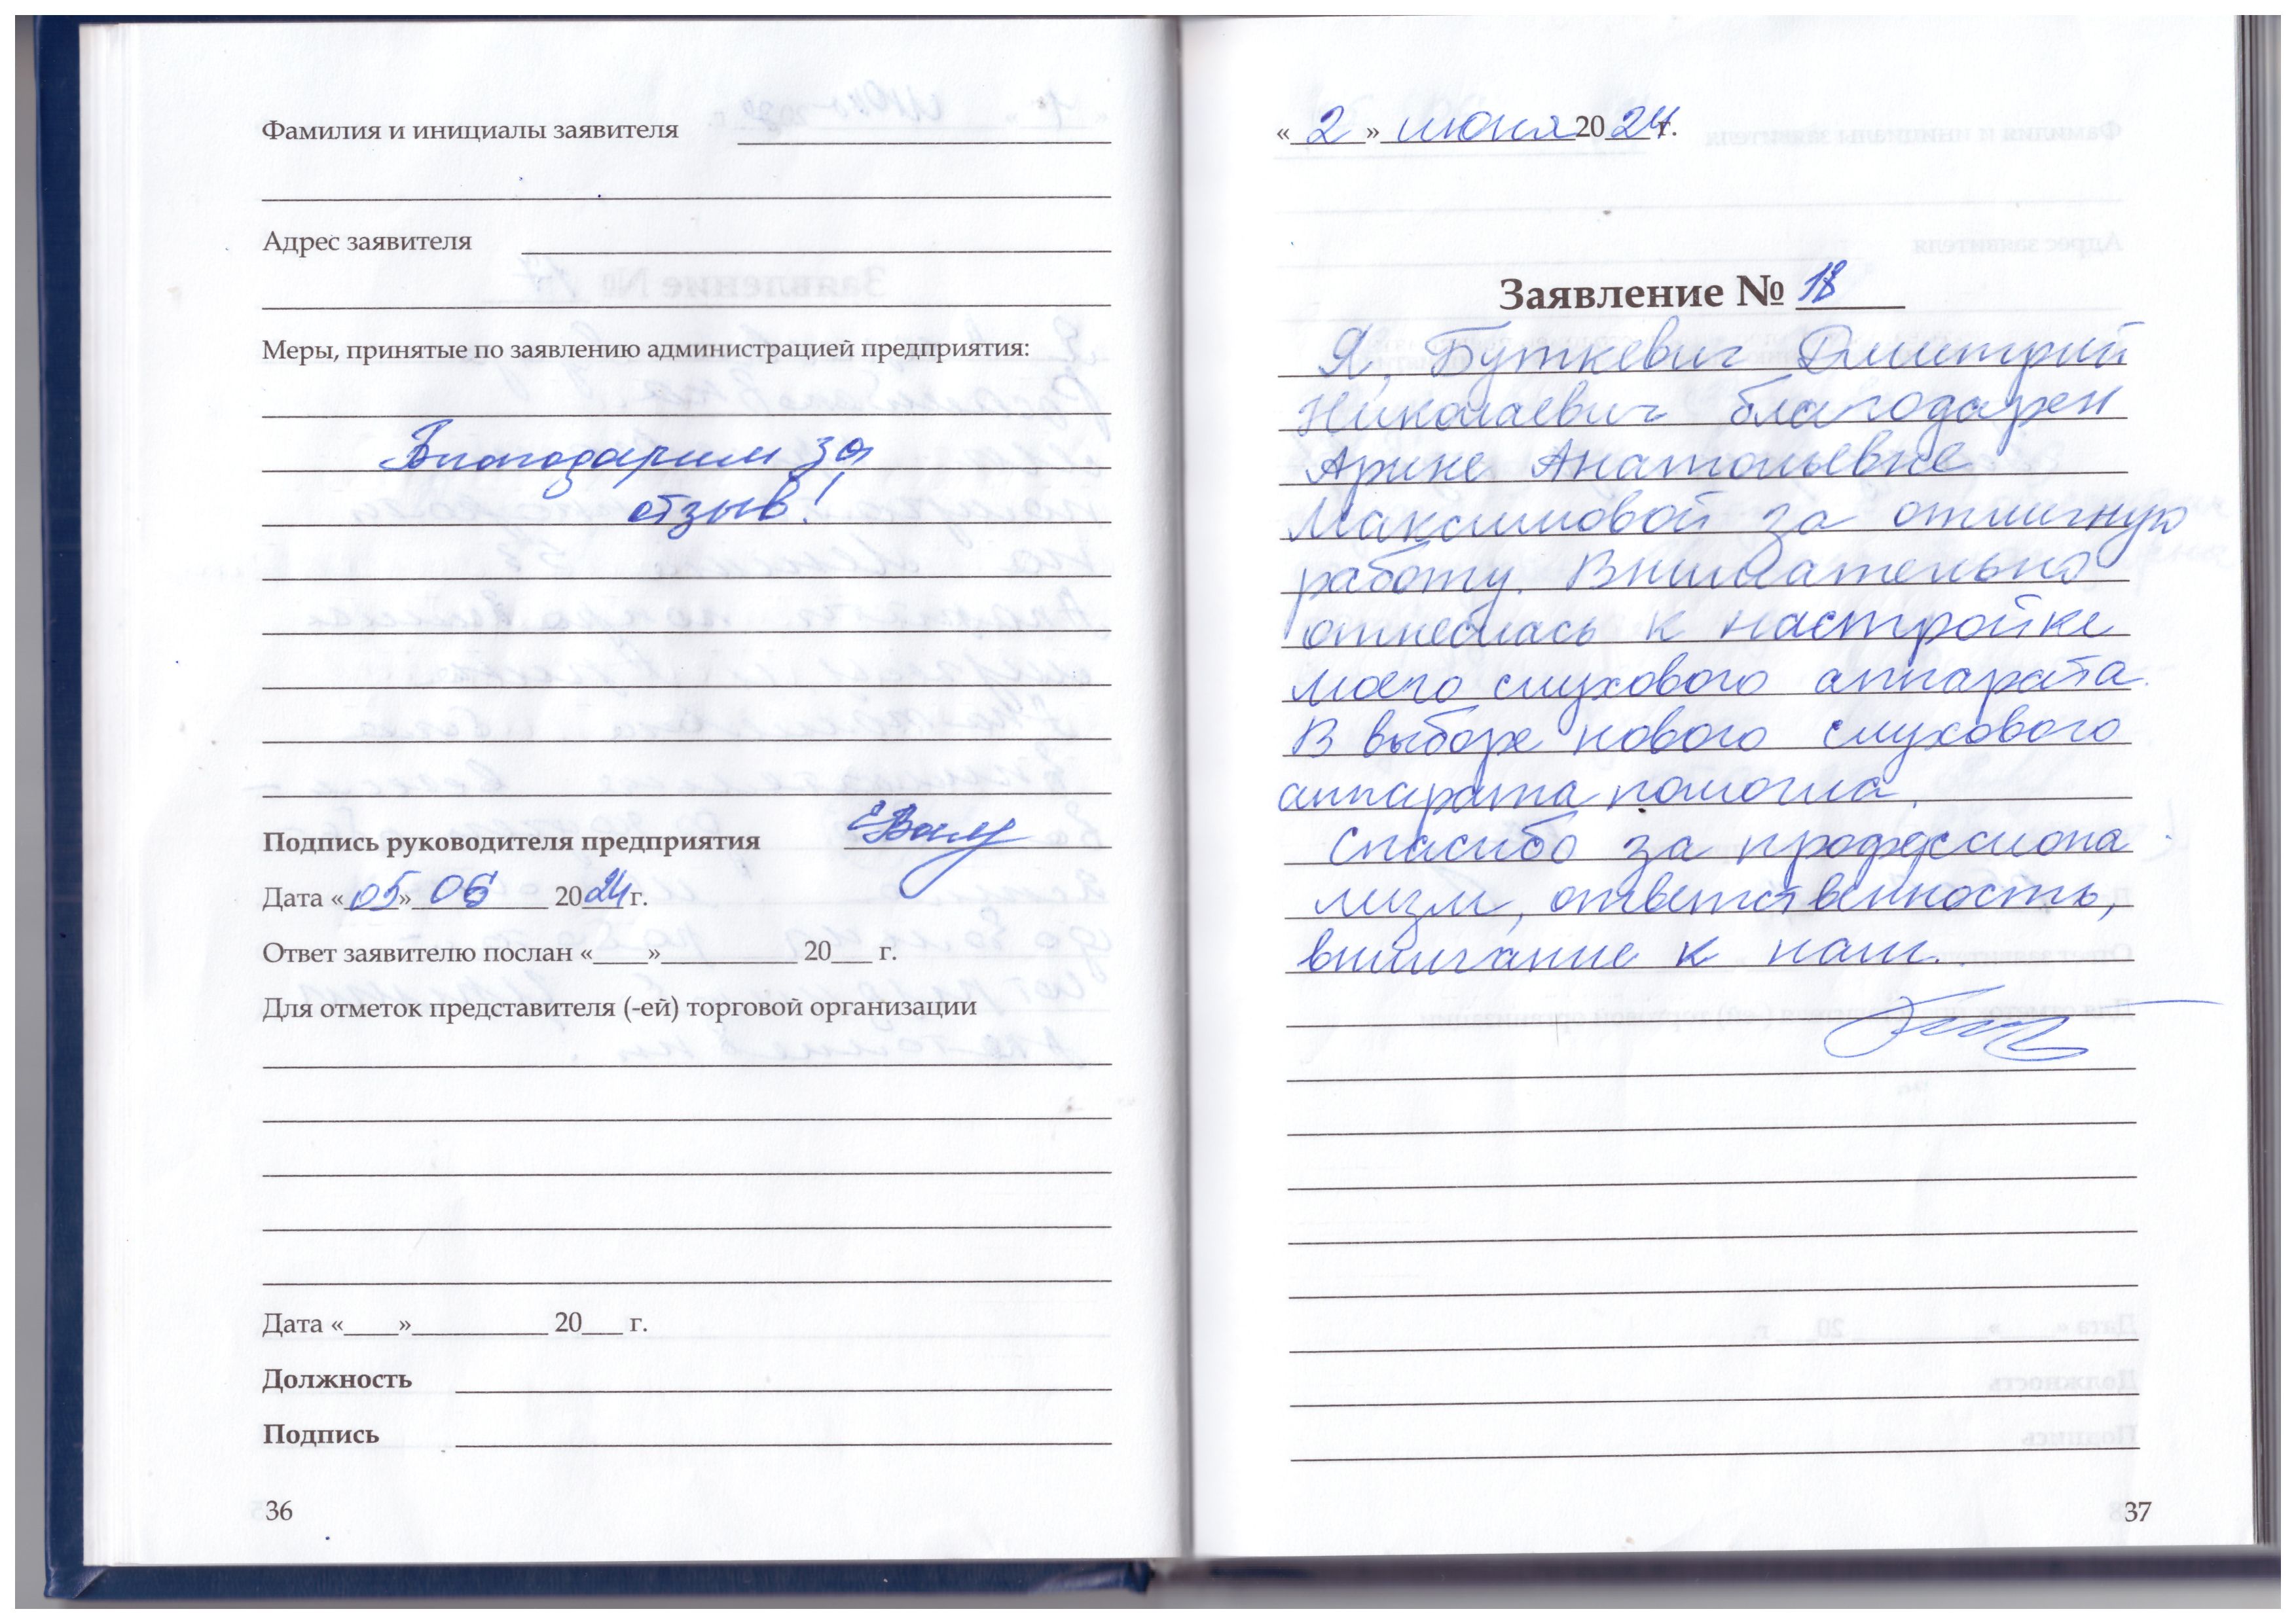 Фамилия и инициалы заявителя
Адрес заявителя
Меры, принятые по заявлению администрацией предприятия:
Благодарим за
отзыв!
Подпись руководителя предприятия
Дата «05» 06 2024 г.
Ответ заявителю послан «____»__________ 20___ г.
Для отметок представителя (-ей) торговой организации
Дата «____»__________ 20___ г.
Должность
Подпись
36
«2» июня 2024 г.
Заявление № 18
Я, Буткевич Дмитрий
Николаевич благодарен
Арине Анатольевне
Максимовой за отличную
работу. Внимательно
отнеслась к настройке
моего слухового аппарата.
В выборе нового слухового
аппарата помогла.
Спасибо за профессиона
лизм, ответственность,
внимание к нам.
37